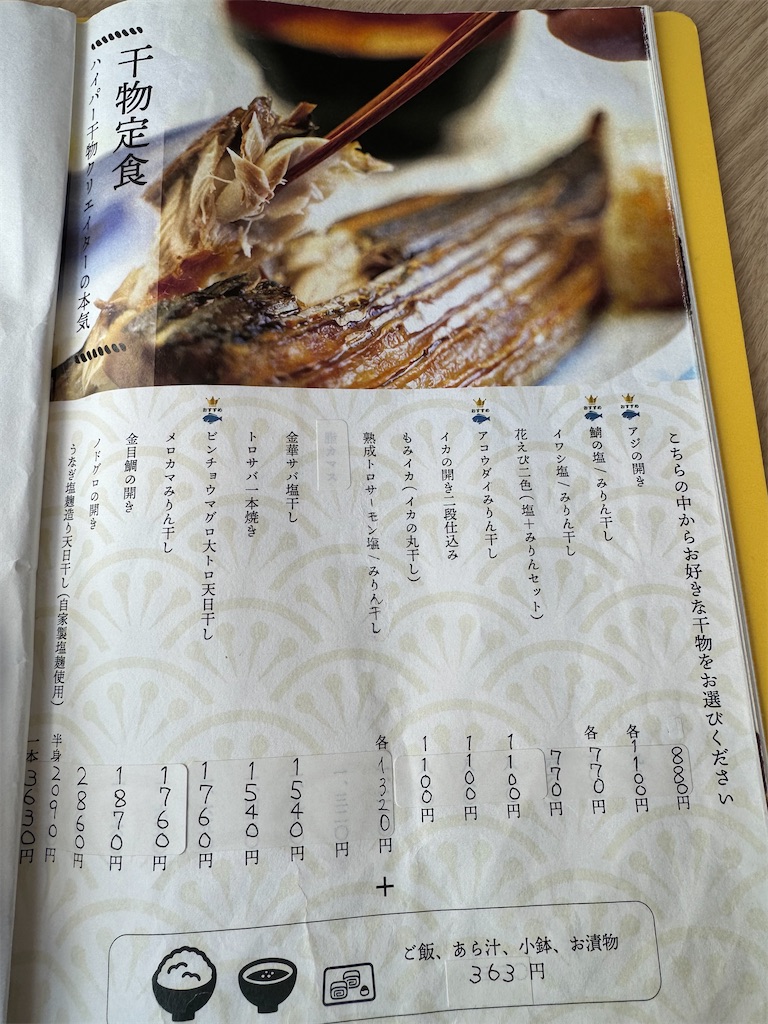 干物定食
ハイパー干物クリエイターの本気
こちらの中からお好きな干物をお選びください
おすすめ
アジの開き
880円
おすすめ
鯖の塩/みりん干し
各1100円
イワシ塩/みりん干し
各770円
花えび二色(塩＋みりんセット)
770円
おすすめ
アコウダイみりん干し
1100円
イカの開き二段仕込み
1100円
もみイカ(イカの丸干し)
1100円
熟成トロサーモン塩/みりん干し
各1320円
円
金華サバ塩干し
1540円
トロサバ一本焼き
1540円
おすすめ
ビンチョウマグロ大トロ天日干し
1760円
メロカマみりん干し
1760円
金目鯛の開き
1870円
ノドグロの開き
2860円
うなぎ塩麹造り天日干し(自家製塩麹使用)
半身2090円
一本3630円
＋
ご飯、あら汁、小鉢、お漬物
363円